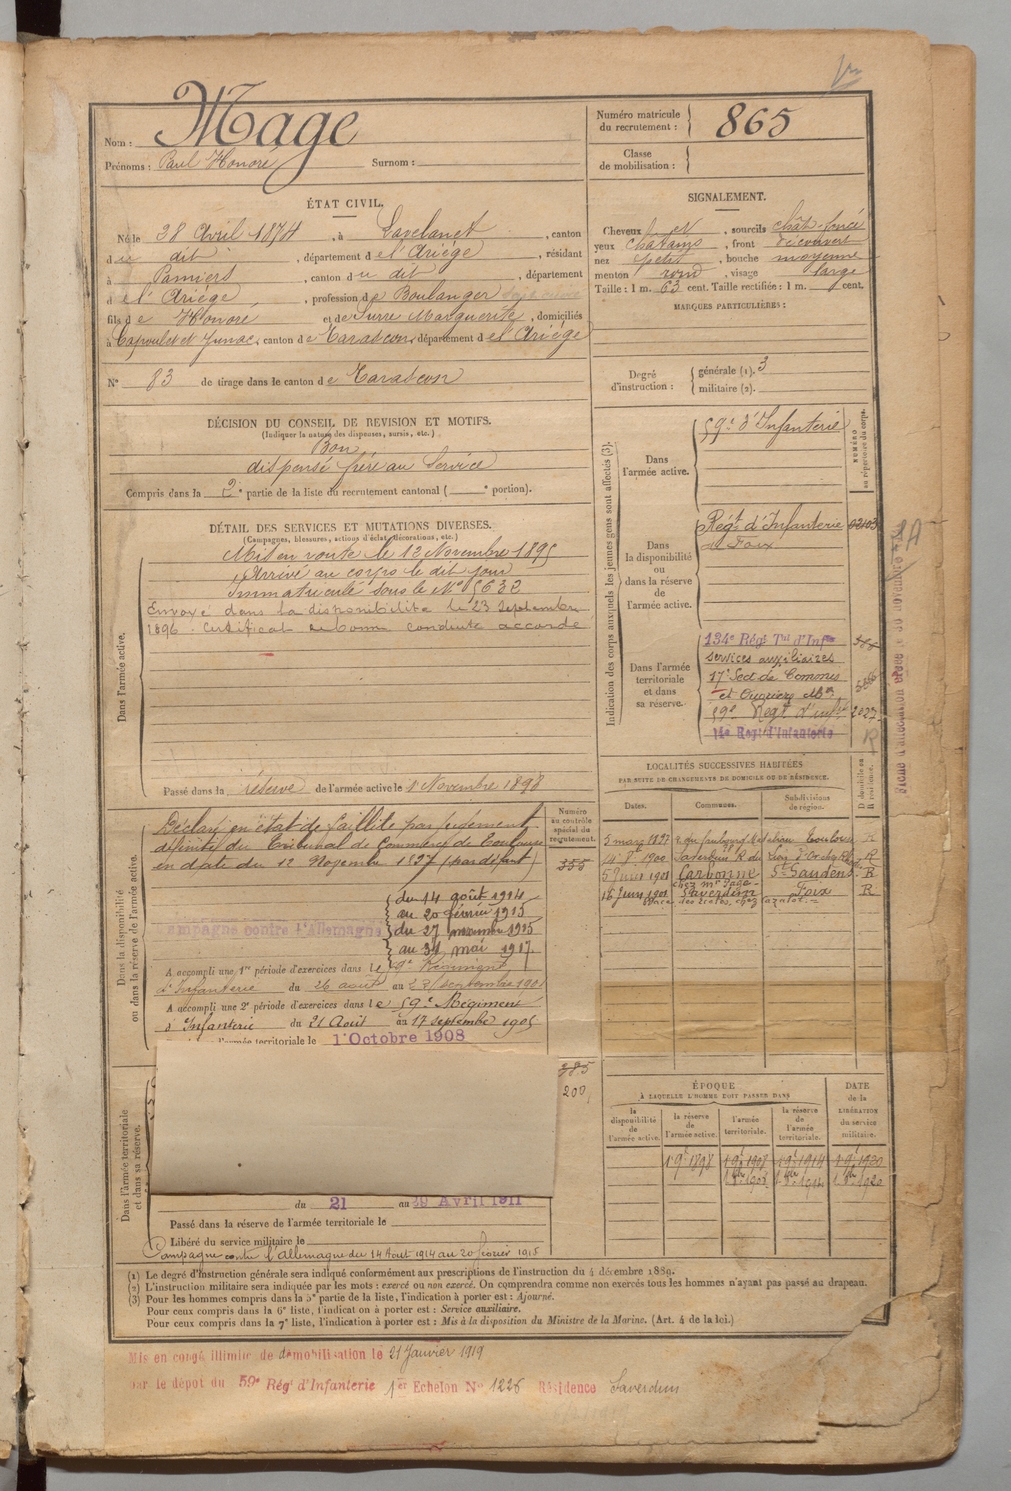 Nom : Mage
Prénoms : Paul Honoré Surnom :
Numéro matricule du recrutement : 865
Classe de mobilisation :
ÉTAT CIVIL.
Né le 28 Avril 1874, à Lavelanet, canton
du dit, département de l'Ariège, résidant
à Pamiers, canton du dit, département
de l'Ariège, profession de Boulanger
fils de Honoré et de Surre Marguerite, domiciliés
à Capoulet et Junac, canton de Tarascon, département de l'Ariège
N° 83 de tirage dans le canton de Tarascon
SIGNALEMENT.
Cheveux et, sourcils chât-foncé
yeux châtains, front découvert
nez petit, bouche moyenne
menton rond, visage large
Taille : 1 m. 63 cent. Taille rectifiée : 1 m. cent.
MARQUES PARTICULIÈRES :
Degré d'instruction : générale (1). 3
militaire (2).
DÉCISION DU CONSEIL DE REVISION ET MOTIFS.
(Indiquer la nature des dispenses, sursis, etc.)
Bon
dispensé frère au Service
Compris dans la 2e partie de la liste du recrutement cantonal ( e portion).
DÉTAIL DES SERVICES ET MUTATIONS DIVERSES.
(Campagnes, blessures, actions d'éclat, décorations, etc.)
Dans l'armée active.
Mis en route le 12 Novembre 1895
Arrivé au corps le dit jour
Immatriculé sous le N° 5632
Envoyé dans la disponibilité le 23 Septembre
1896. Certificat de bonne conduite accordé
Passé dans la réserve de l'armée active le 1 Novembre 1898
Indication des corps auxquels les jeunes gens sont affectés (3).
NUMÉRO au répertoire du corps.
Dans l'armée active.
59e d'Infanterie
Dans la disponibilité ou dans la réserve de l'armée active.
Régt d'Infanterie 02103
de Foix
Dans l'armée territoriale et dans sa réserve.
134e Régt Tal d'Infie
services auxiliaires
17e Sect de Commis
et Ouvriers Mres
59e Régt d'infie 2027
14e Régt d'Infanterie R
LOCALITÉS SUCCESSIVES HABITÉES
PAR SUITE DE CHANGEMENTS DE DOMICILE OU DE RÉSIDENCE.
Dates. Communes. Subdivisions de région. D domicile ou R résidence.
5 mars 1897 Toulouse R
14-8-1900 Saverdun R
5 Juin 1901 Carbonne St Gaudens R
chez Mr
16 Juin 1901 Saverdun Foix R
Dans la disponibilité ou dans la réserve de l'armée active.
Numéro au contrôle spécial du recrutement.
Déclaré en état de faillite par jugement
définitif du Tribunal de Commerce de Toulouse
en date du 12 Novembre 1897 (par défaut) 355
Campagne contre l'Allemagne
du 14 août 1914
au 20 février 1915
du 27
au 31 mai 1917.
A accompli une 1re période d'exercices dans le 59e Régiment
d'Infanterie du 26 août au 22 septembre 1901
A accompli une 2e période d'exercices dans le 59e Régiment
d'Infanterie du 21 Août au 17 septembre 1905
l'armée territoriale le 1er Octobre 1908
Dans l'armée territoriale et dans sa réserve.
385
du 21 au 29 Avril 1911
Passé dans la réserve de l'armée territoriale le
Libéré du service militaire le
Campagne contre l'Allemagne du 14 Aout 1914 au 20 février 1915
ÉPOQUE
À LAQUELLE L'HOMME DOIT PASSER DANS
la disponibilité de l'armée active. la réserve de l'armée active. l'armée territoriale. la réserve de l'armée territoriale. DATE de la LIBÉRATION du service militaire.
1 9bre 1898 1 9bre 1908 1 9bre 1914 1 9bre 1920
(1) Le degré d'instruction générale sera indiqué conformément aux prescriptions de l'instruction du 4 décembre 1889.
(2) L'instruction militaire sera indiquée par les mots : exercé ou non exercé. On comprendra comme non exercés tous les hommes n'ayant pas passé au drapeau.
(3) Pour les hommes compris dans la 5e partie de la liste, l'indication à porter est : Ajourné.
Pour ceux compris dans la 6e liste, l'indication à porter est : Service auxiliaire.
Pour ceux compris dans la 7e liste, l'indication à porter est : Mis à la disposition du Ministre de la Marine. (Art. 4 de la loi.)
Mis en congé illimité de démobilisation le 21 Janvier 1919
par le dépôt du 59e Régt d'Infanterie 1er Echelon N° 1226 Résidence Saverdun